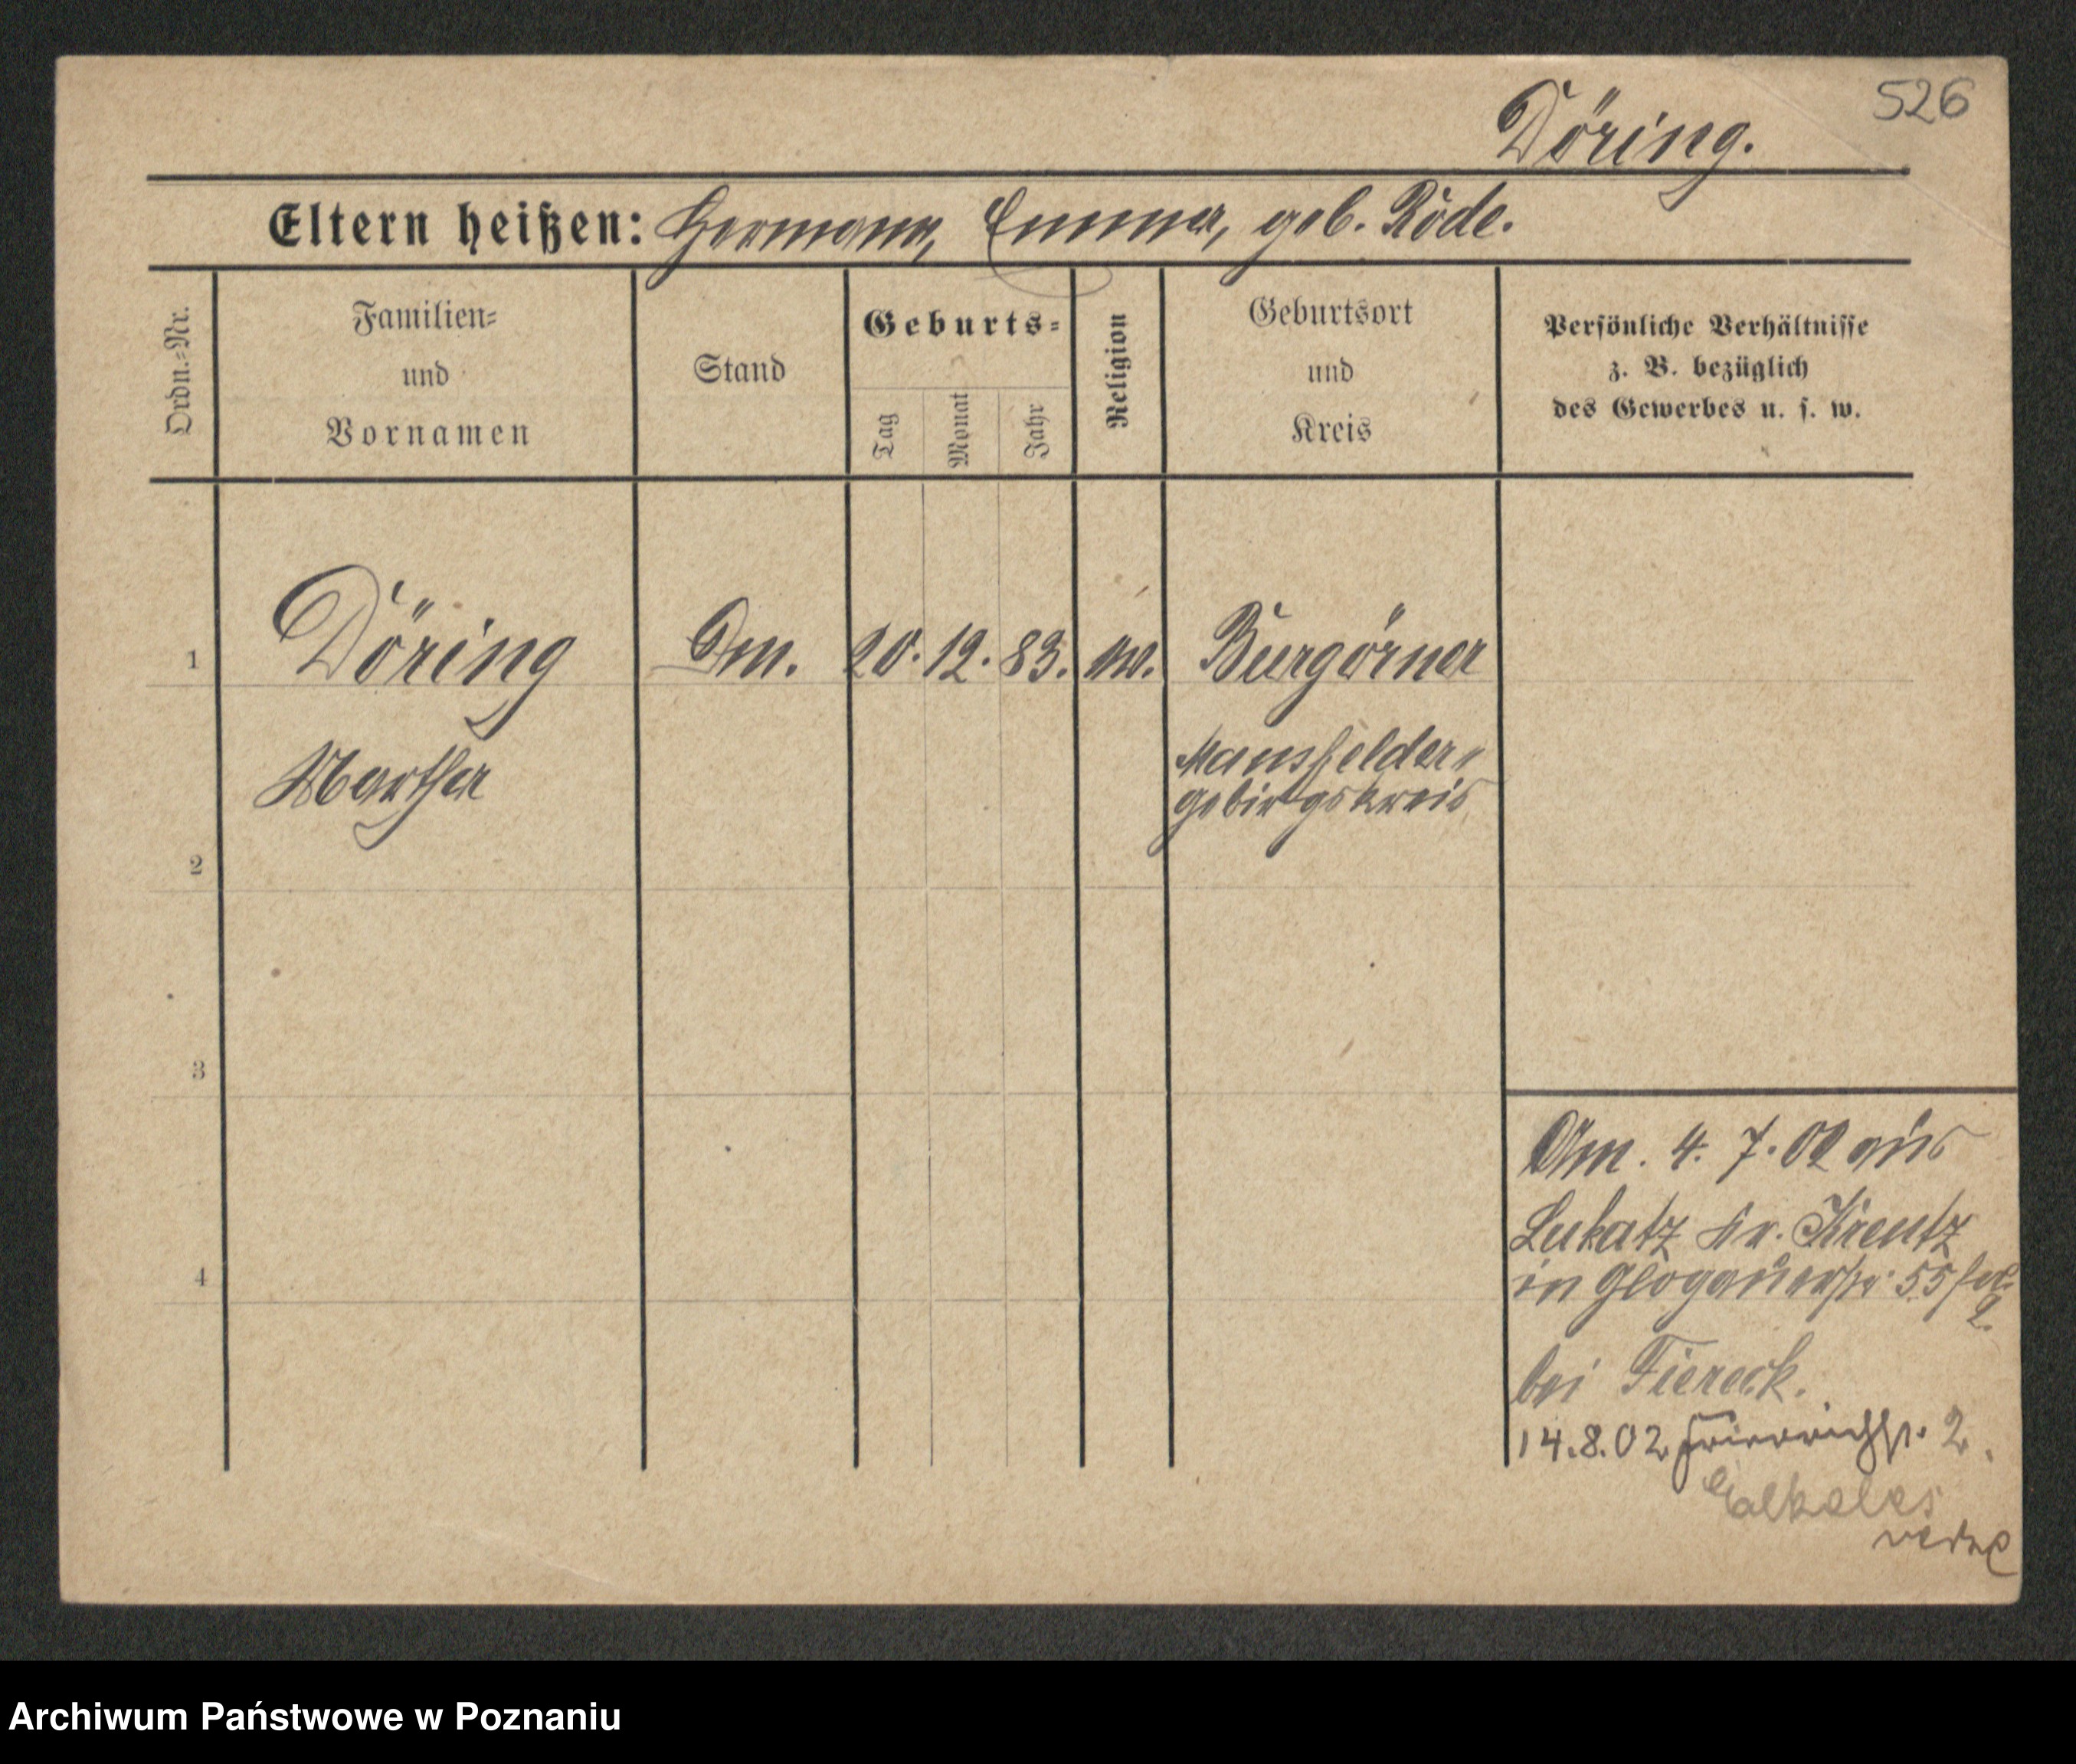 526
Döring.
Eltern heißen: Hermann, Emma, geb. Röde.
Ordn.-Nr.
Familien-
und
Vornamen
Stand
Geburts-
Tag
Monat
Jahr
Religion
Geburtsort
und
Kreis
Persönliche Verhältnisse
z. B. bezüglich
des Gewerbes u. s. w.
1 Döring 20. 12. 83. Burgörner
Martha Mansfelder-
gebirgskreis
2
3
4
Am. 4. 7. 02 aus
Lukatz Kr. Kreutz
in Glogauerstr. 55
bei Fiereck.
14.8.02 Friedrichstr. 2.
Archiwum Państwowe w Poznaniu